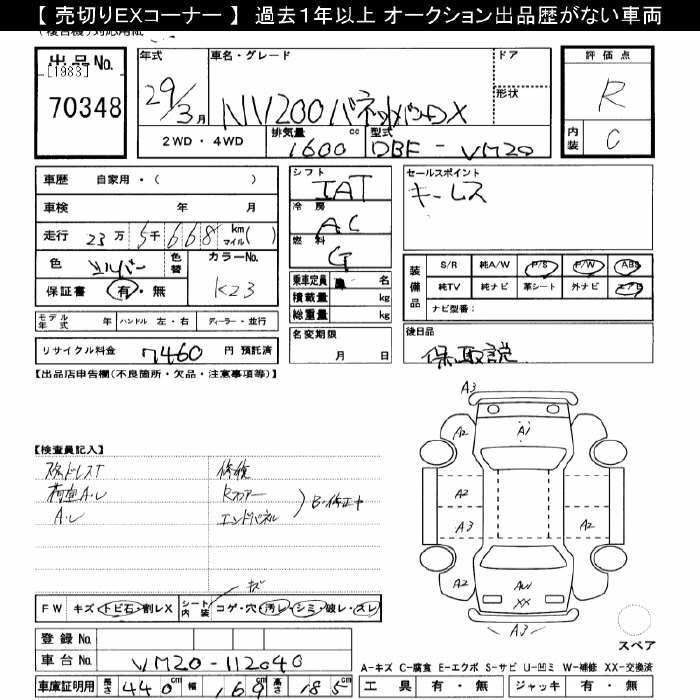 【 売切りEXコーナー 】 過去1年以上 オークション出品歴がない車両
出品No.
[1983]
70348
年式
29/3月
車名・グレード
ドア
形状
NV200バネットバンDX
2WD・4WD
排気量
1600 cc
型式
DBF-VM20
評価点
R
内装
C
車歴 自家用・( )
車検 年 月
走行 23万 5千 668 km マイル( )
色 シルバー
色替
カラーNo.
K23
保証書 有・無
モデル年式 年 ハンドル 左・右 ディーラー・並行
リサイクル料金 7460 円 預託済
シフト
IAT
冷房
AC
燃料
G
乗車定員 名
積載量 kg
総重量 kg
名変期限
月 日
セールスポイント
キーレス
装備品
S/R 純A/W P/S P/W ABS
純TV 純ナビ 革シート 外ナビ エアB
ナビ型番:
後日品
保取説
【出品店申告欄(不良箇所・欠品・注意事項等)】
【検査員記入】
A・レ
A・レ
修複
Rフロアー
エンドパネル
B・修正+
A3
A2
A1
A2
A2
A3
A2
A2
A2
AW
XX
A3
スペア
キズ
FW キズ・トビ石・割レX
シート内装 コゲ・穴・汚レ・シミ・破レ・スレ
登録No.
車台No. VM20-112040
車庫証明用 長さ 440 cm 幅 169 cm 高さ 185 cm
A-キズ C-腐食 E-エクボ S-サビ U-凹ミ W-補修 XX-交換済
工具 有・無 ジャッキ 有・無